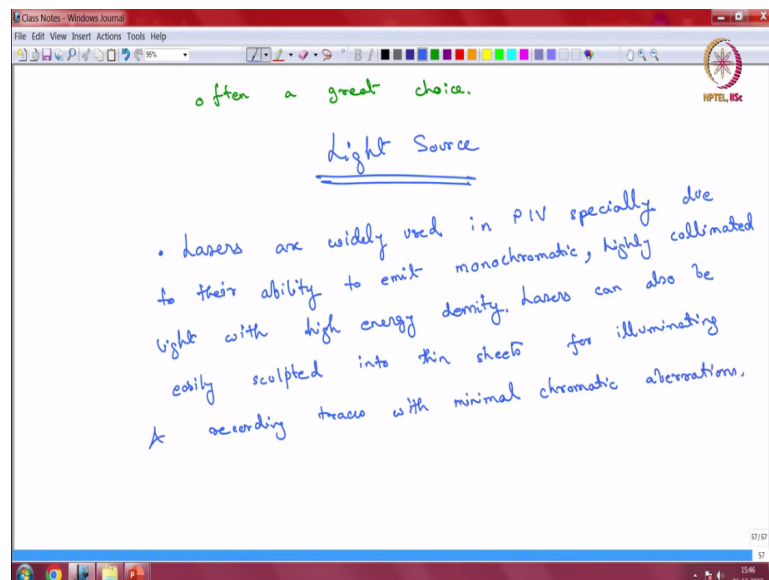 Class Notes - Windows Journal
File Edit View Insert Actions Tools Help
95%
NPTEL, IISc
often a great choice.
Light Source
• Lasers are widely used in PIV specially due
to their ability to emit monochromatic, highly collimated
light with high energy density. Lasers can also be
easily sculpted into thin sheets for illuminating
& recording traces with minimal chromatic aberrations.
57/57
57
15:46